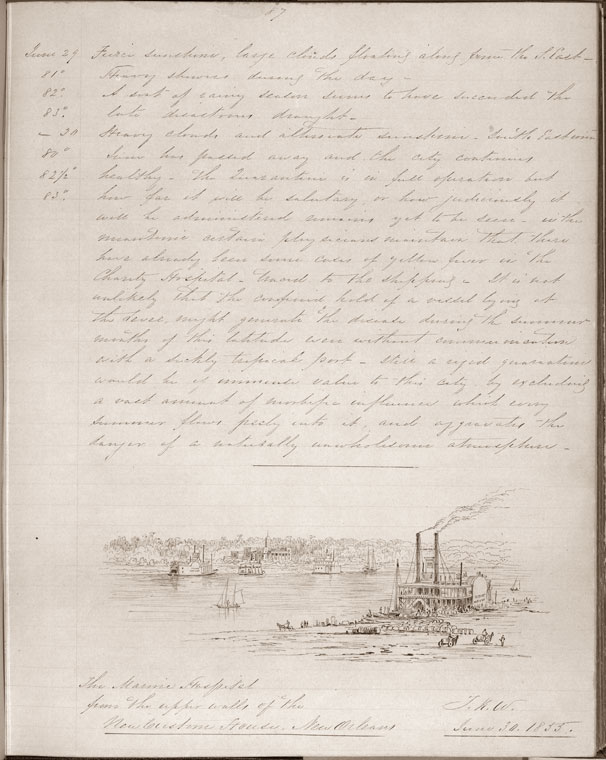 67
June 29 Fierce sunshine, large clouds floating along from the S. East -
81° Heavy showers during the day -
82° A sort of rainy season seems to have succeeded the
83°. late disastrous drought -
- 30 Heavy clouds and alternate sunshine. South East
80° June has passed away and the city continues
82½° healthy - The Quarantine is in full operation but
83°. how far it will be salutary, or how judiciously it
will be administered remains yet to be seen - in the
meantime certain physicians maintain that there
have already been some cases of yellow fever in the
Charity Hospital - traced to the shipping - It is not
unlikely that the confined hold of a vessel lying at
the Levee, might generate the disease during the summer
months of this latitude even without communication
with a sickly tropical port - still a rigid quarantine
would be of immense value to this city, by excluding
a vast amount of morbific influence which every
summer flows freely into it, and aggravates the
danger of a naturally unwholesome atmosphere -
The Marine Hospital
from the upper walls of the
New Custom House, New Orleans
T. K. W.
June 30. 1855.